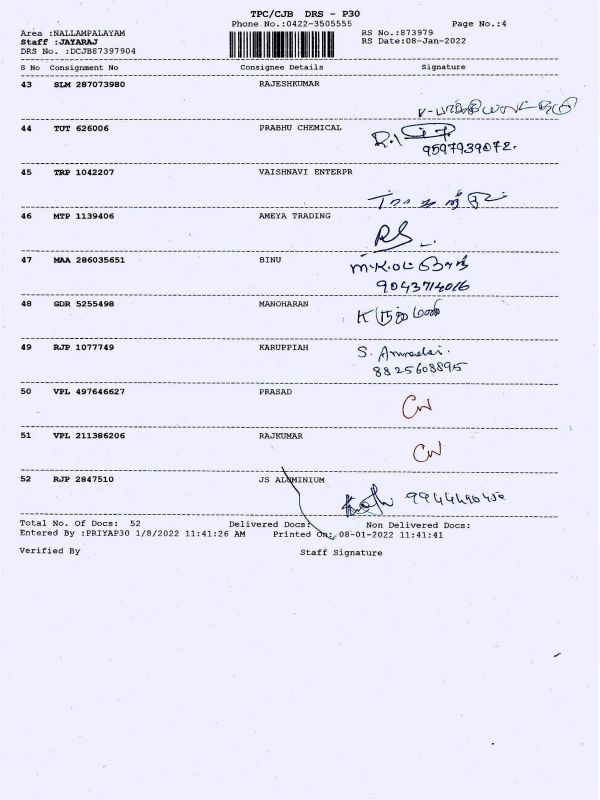 TPC/CJB DRS - P30
Phone No.:0422-3505555 Page No.:4
Area :NALLAMPALAYAM RS No.:873979
Staff :JAYARAJ RS Date:08-Jan-2022
DRS No. :DCJB87397904
S No Consignment No Consignee Details Signature
43 SLM 287073980 RAJESHKUMAR
44 TUT 626006 PRABHU CHEMICAL
9597939072.
45 TRP 1042207 VAISHNAVI ENTERPR
46 MTP 1139406 AMEYA TRADING
RS
47 MAA 286035651 BINU
9043714016
48 GDR 5255498 MANOHARAN
49 RJP 1077749 KARUPPIAH
S.
8825608895
50 VPL 497646627 PRASAD
51 VPL 211386206 RAJKUMAR
52 RJP 2847510 JS ALUMINIUM
Total No. Of Docs: 52 Delivered Docs: Non Delivered Docs:
Entered By :PRIYAP30 1/8/2022 11:41:26 AM Printed On: 08-01-2022 11:41:41
Verified By Staff Signature